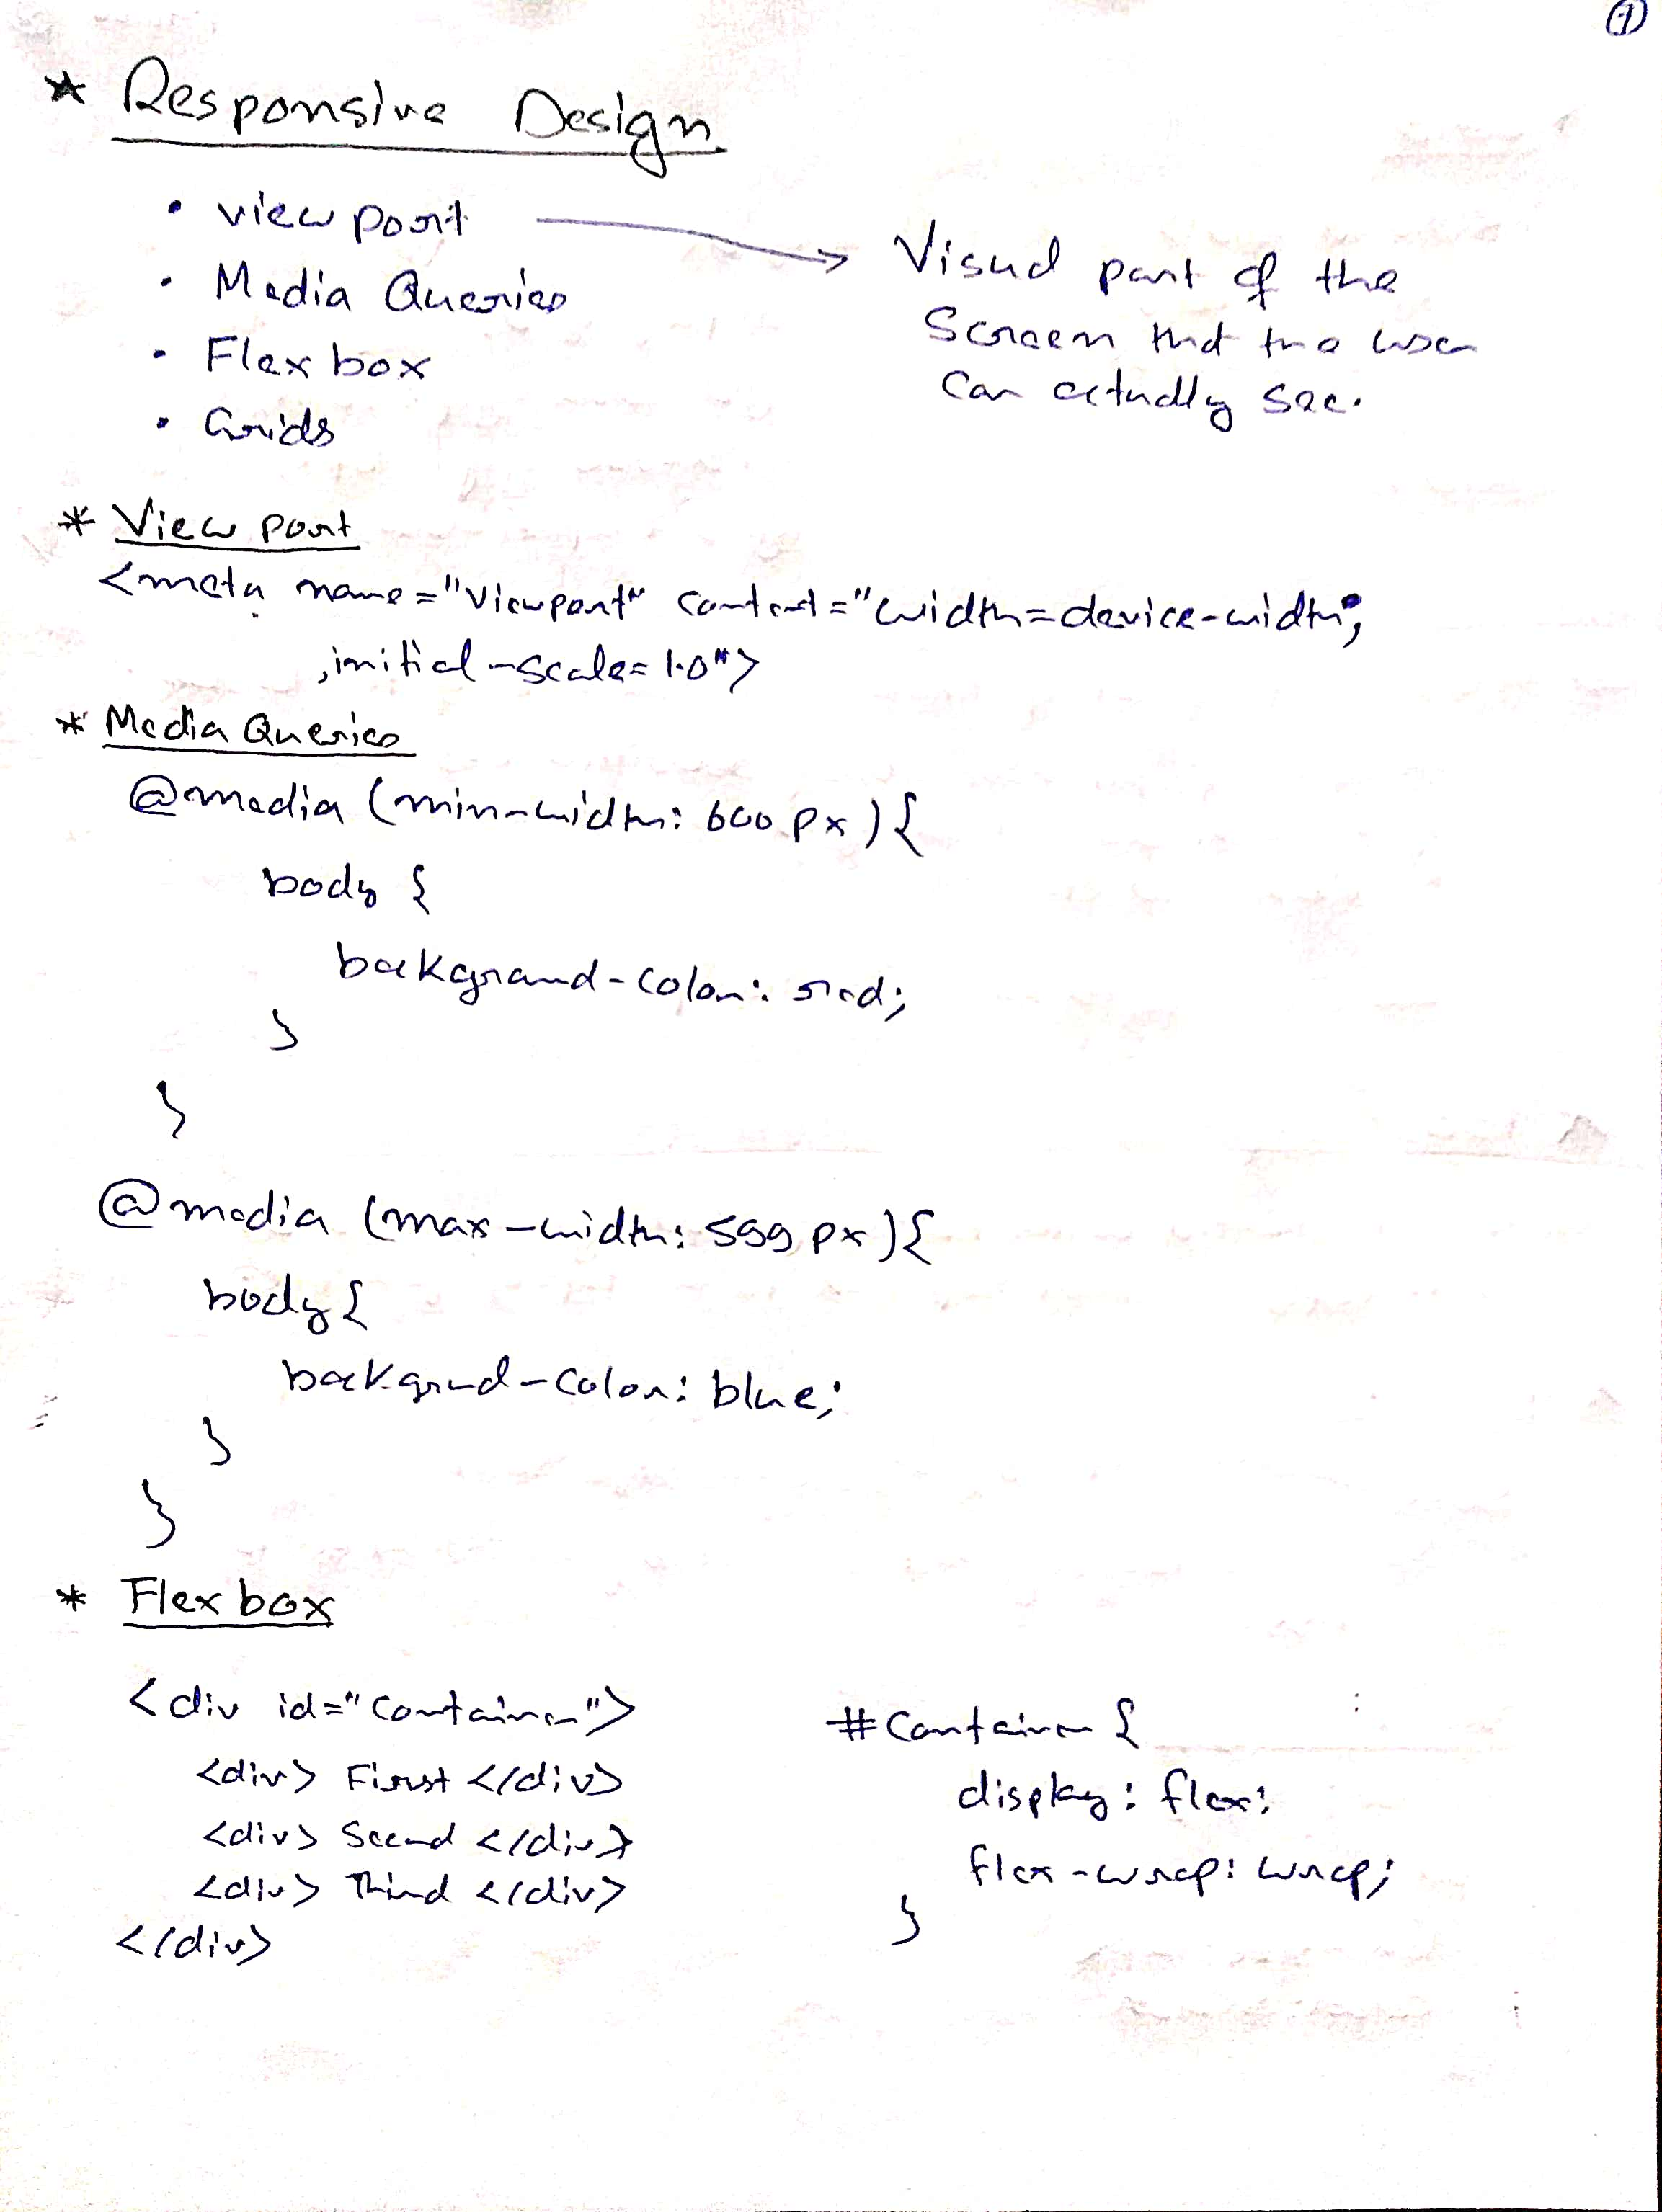 ①
* Responsive Design
• viewport → Visual part of the
screen that the user
can actually see.
• Media Queries
• Flexbox
• Grids
* View port
<meta name="viewport" content="width=device-width,
,initial-scale=1.0">
* Media Queries
@media (min-width: 600px){
body {
background-color: red;
}
}
@media (max-width: 599px){
body{
backgrund-color: blue;
}
}
* Flexbox
<div id="container">
<div> First </div>
<div> Second </div>
<div> Third </div>
</div>
#container {
display: flex;
flex-wrap: wrap;
}